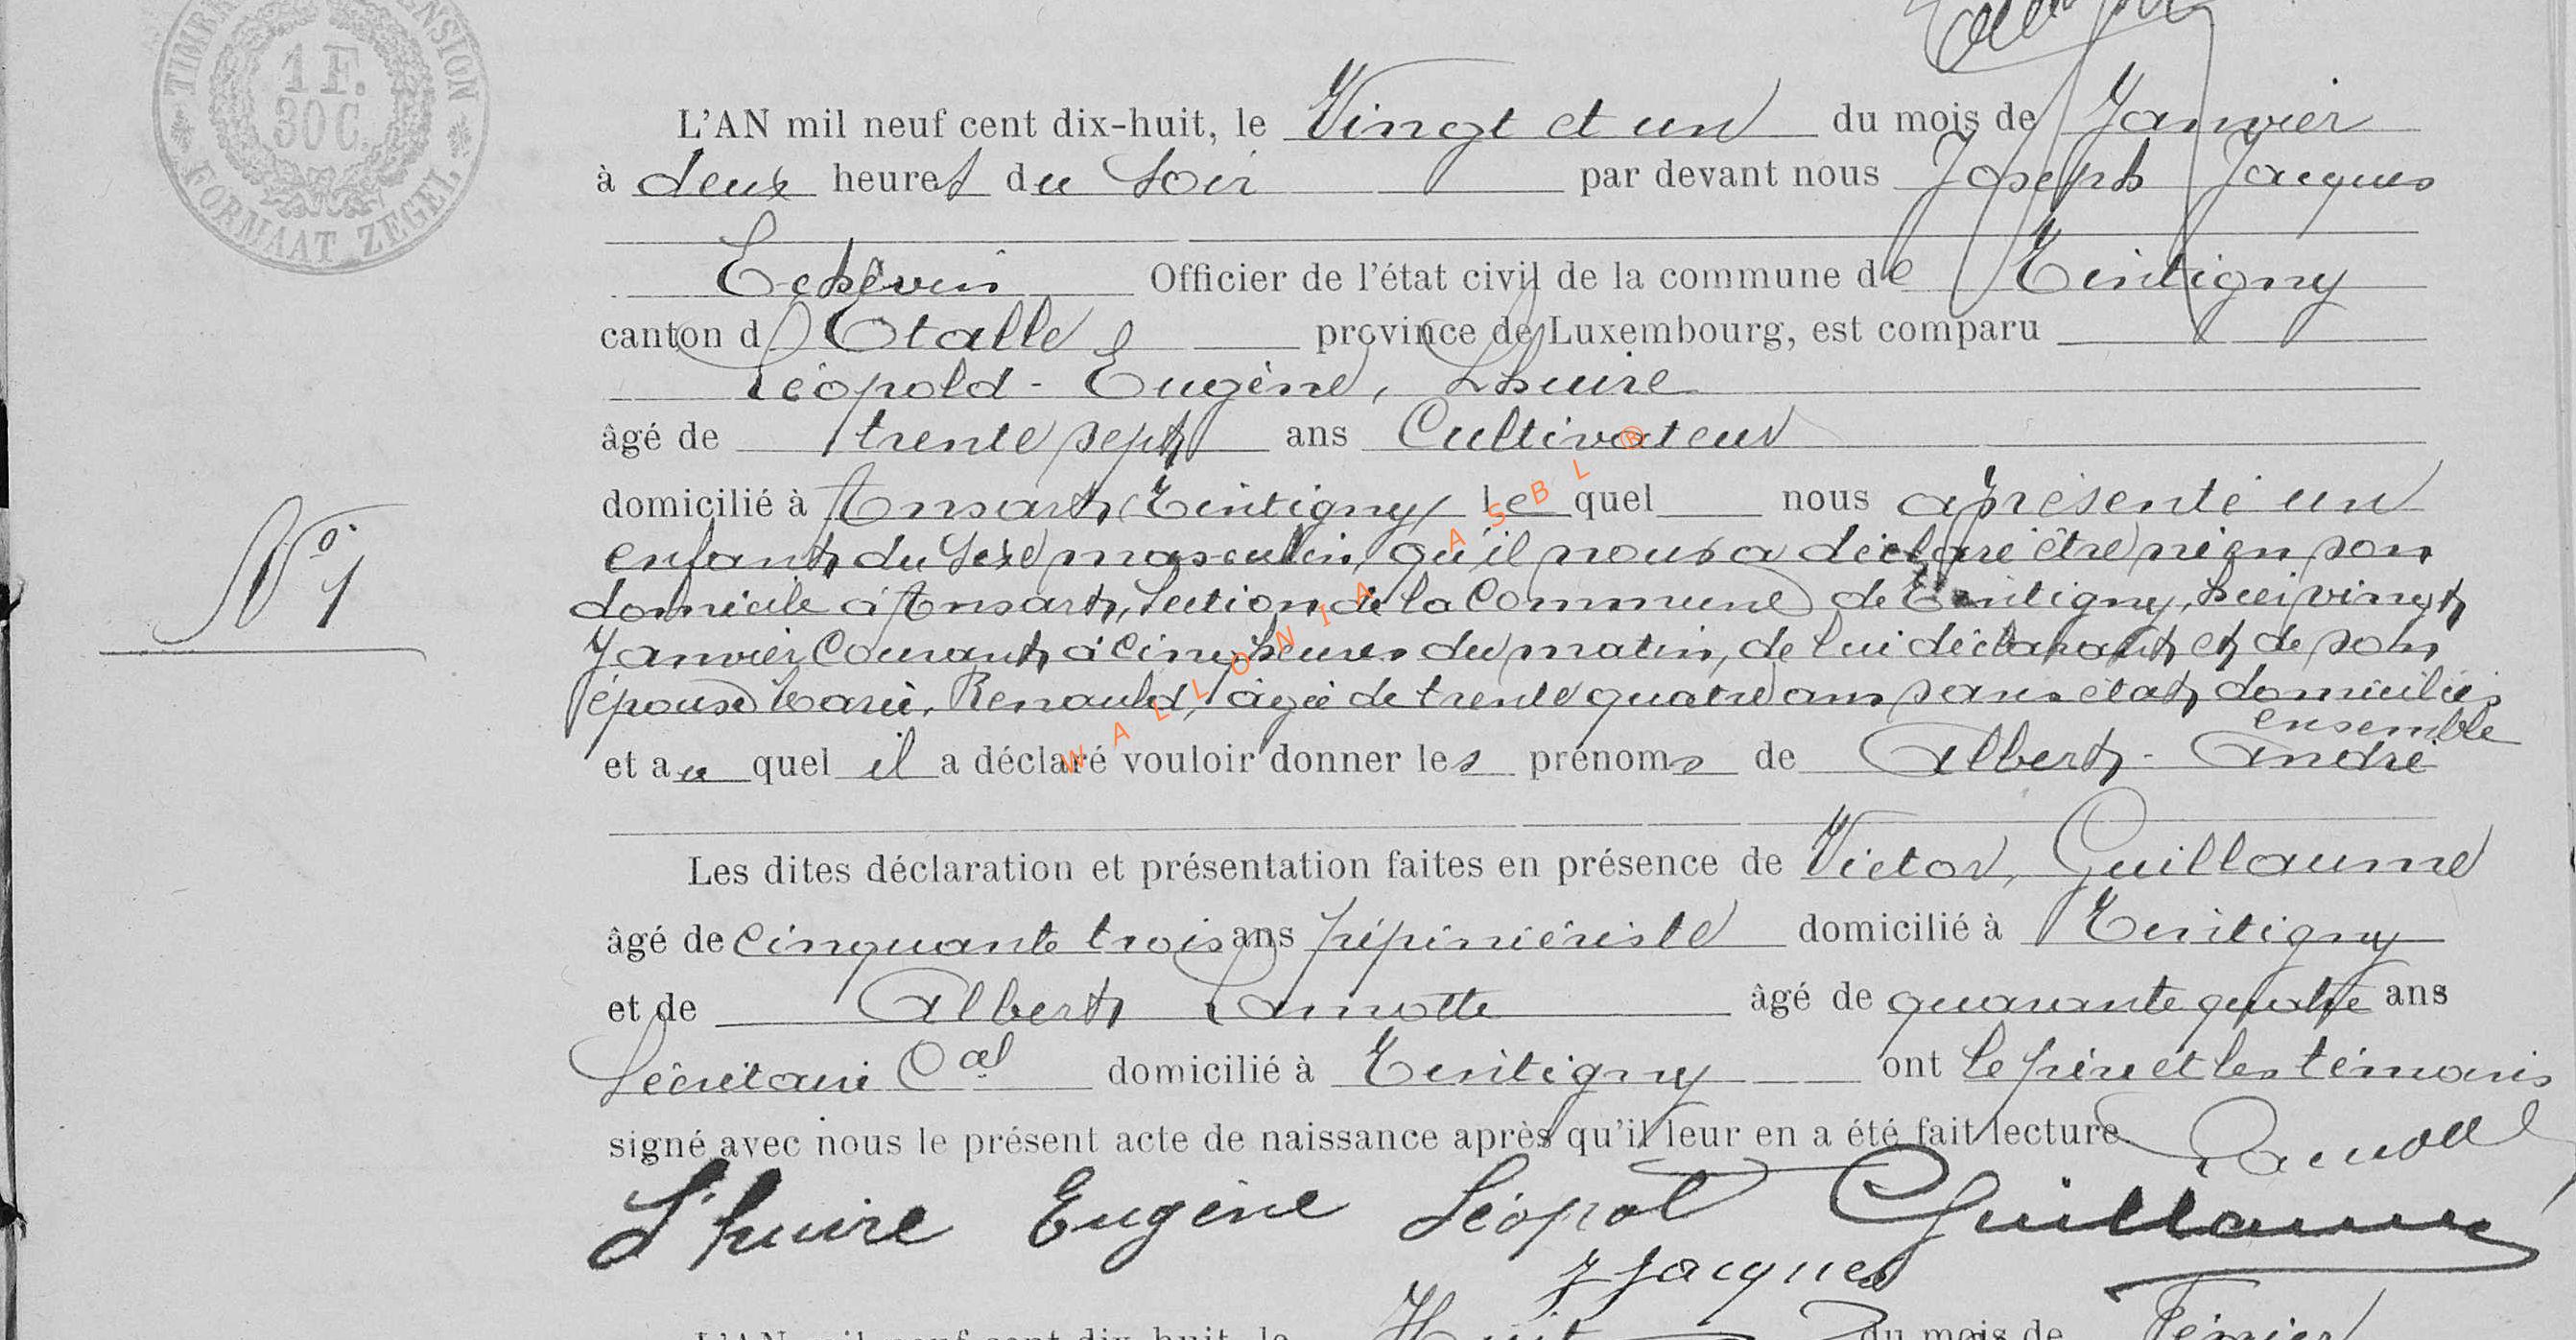 TIMBRE DIMENSION
1 F.
30 C.
FORMAAT ZEGEL
L'AN mil neuf cent dix-huit, le Vingt et un du mois de Janvier
à deux heures du Soir par devant nous Joseph Jacques
Echevin Officier de l'état civil de la commune de Tintigny
canton d'Etalle province de Luxembourg, est comparu
Léopold-Eugène, Lhuire
âgé de trente sept ans Cultivateur
domicilié à Ansart (Tintigny) lequel nous a présenté un
enfant du Sexe masculin, qu'il nous a déclaré être né en son
N° 1
domicile à Ansart, Section de la Commune de Tintigny, hier vingt
Janvier Courant, à Cinq heures du matin, de lui déclarant et de son
épouse Marie, Renauld, âgée de trente quatre ans sans état, domiciliés
ensemble
et au quel il a déclaré vouloir donner les prénoms de Albert-André
Les dites déclaration et présentation faites en présence de Victor, Guillaume
âgé de Cinquante trois ans pépiniériste domicilié à Tintigny
et de Albert Lamotte âgé de quarante quatre ans
Secrétaire Cal domicilié à Tintigny ont le père et les témoins
signé avec nous le présent acte de naissance après qu'il leur en a été fait lecture
Lamotte
L'huire Eugène Léopol Guillaume
J Jacques
L'AN mil neuf cent dix-huit, le Huit du mois de Février
WALLONIA ASBL ®